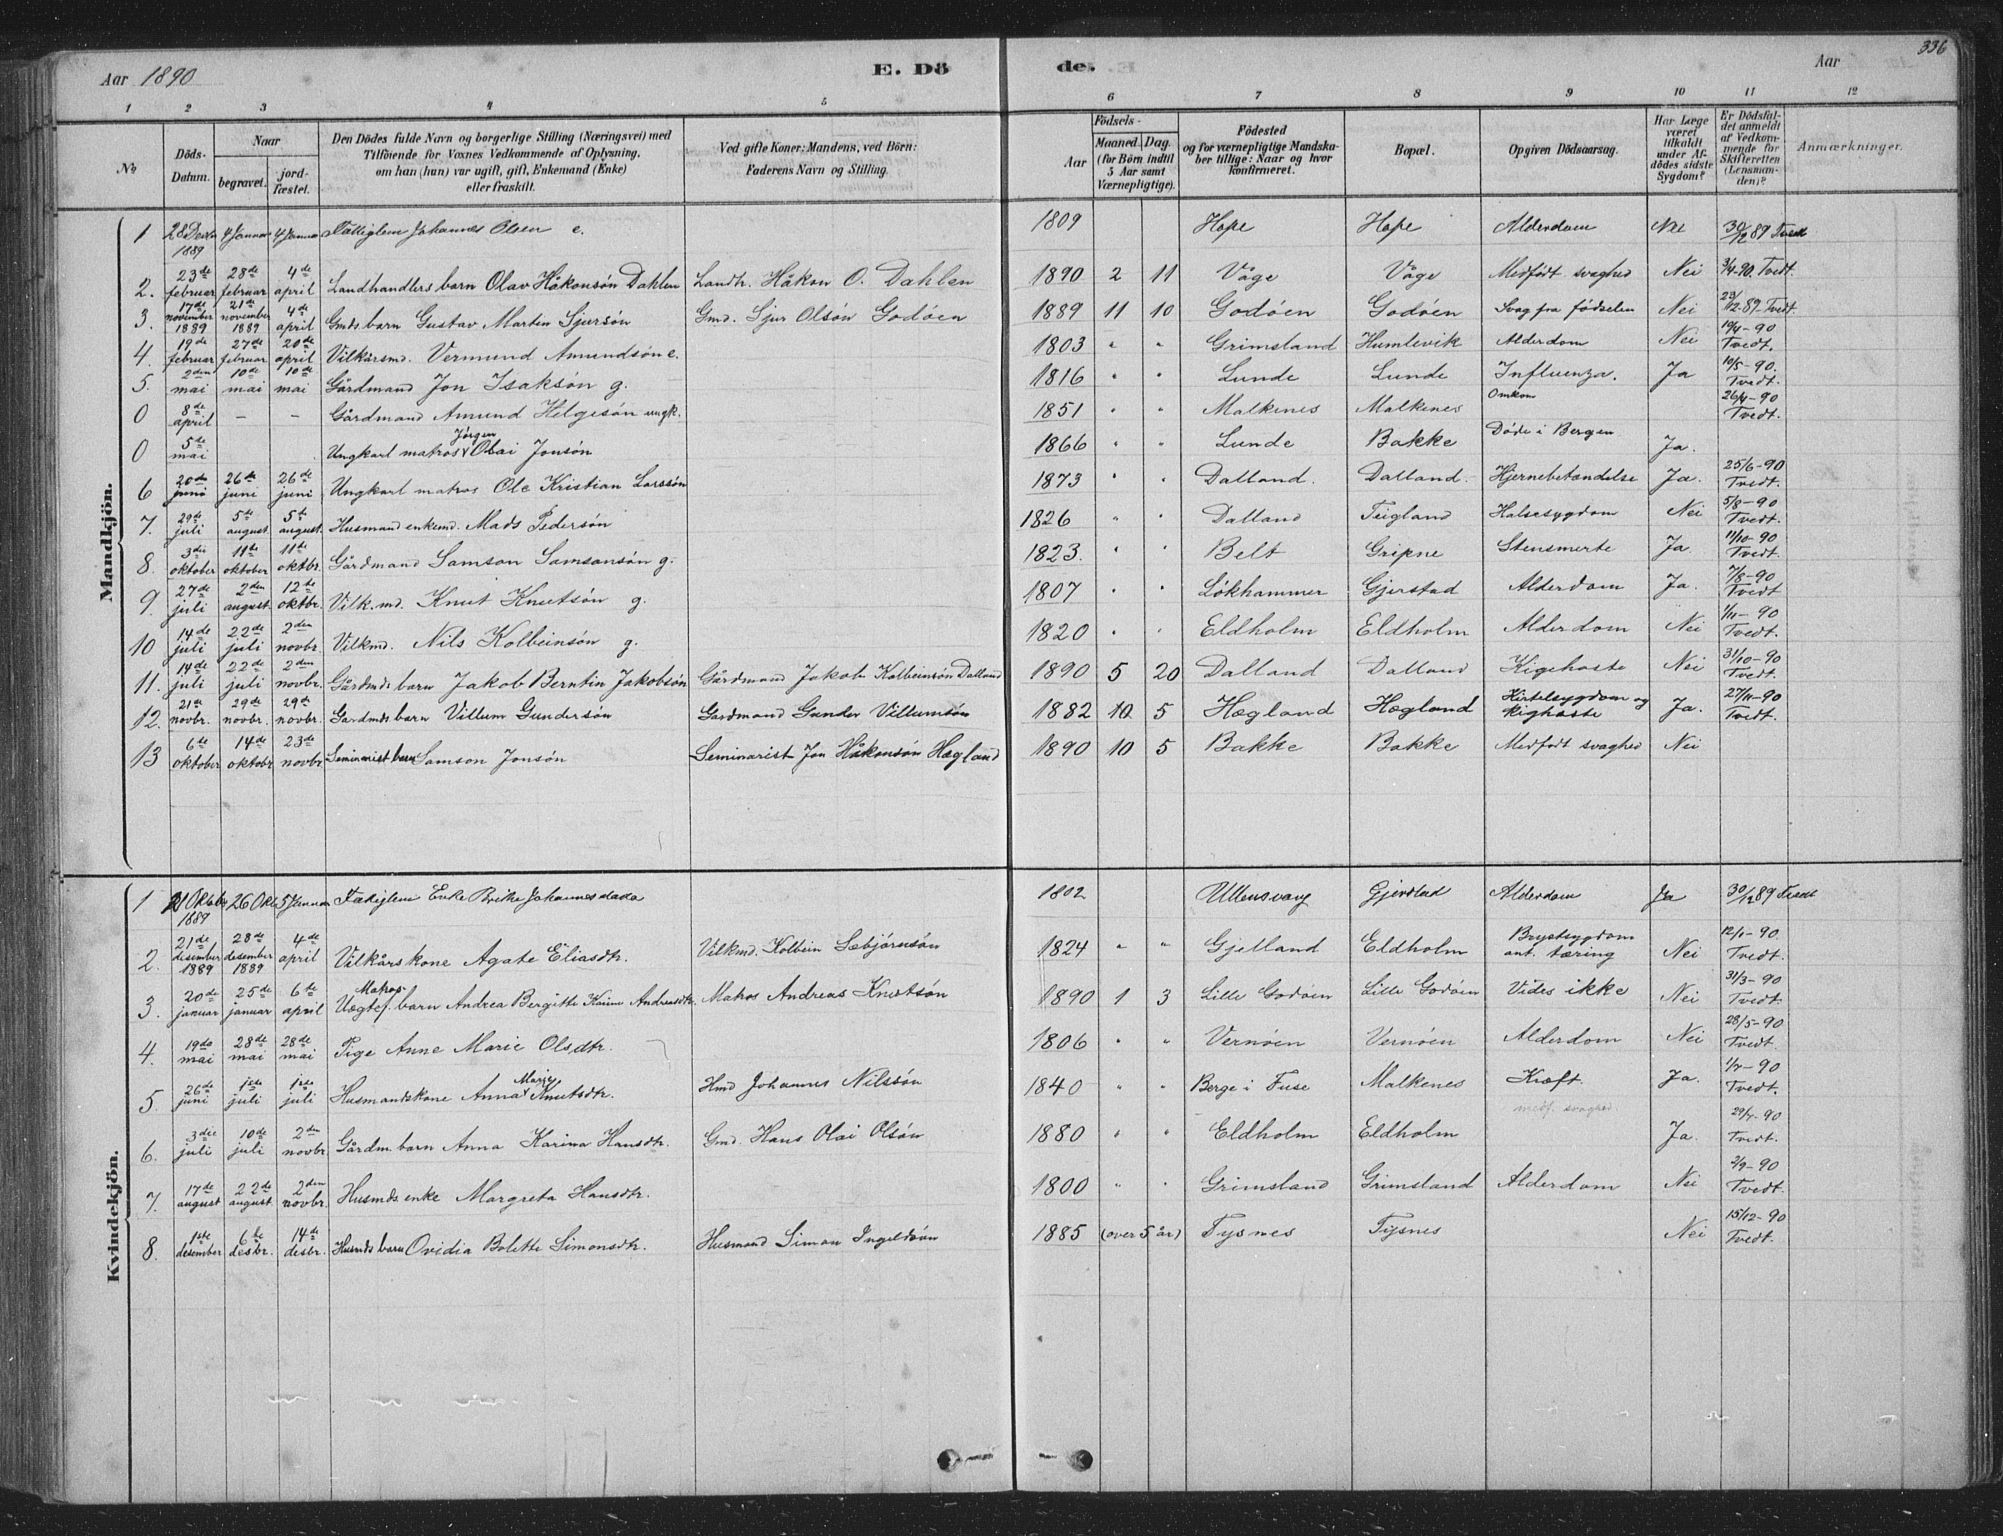 336
Aar 1890 E. Dö de. Aar
1 2 3 4 5 6 7 8 9 10 11 12
No Döds-Datum. Naar begravet. jord-fæstet. Den Dödes fulde Navn og borgerlige Stilling (Næringsvei) med Tilföiende for Voxnes Vedkommende af Oplysning, om han (hun) var ugift, gift, Enkemand (Enke) eller fraskilt. Ved gifte Koner: Mandens, ved Börn: Faderens Navn og Stilling. Födsels- Aar Maaned. Dag. (for Börn indtil 5 Aar samt Værnepligtige). Födested og for værnepligtige Mandskaber tillige: Naar og hvor konfirmeret. Bopæl. Opgiven Dödsaarsag. Har Læge været tilkaldt under Afdödes sidste Sygdom? Er Dödsfaldet anmeldt af Vedkommende for Skifteretten (Lensmanden)? Anmærkninger.
Mandkjön.
1 28 Decbr 1889 4 Januar 4 Januar Fattiglem Johannes Olsen e. 1809 Hope Hope Alderdom Nei 30/12 89 Tvedt
2. 23de februar 28de februar 4de april Landhandlers barn Olav Håkonsön Dahlen Landh. Håkon O. Dahlen 1890 2 11 Våge Våge Medfödt svaghed Nei 3/4-90. Tvedt.
3. 17de november 1889 21de november 1889 4de april Gmds barn Gustav Martin Sjursön Gmd. Sjur Olsön Godöen 1889 11 10 Godöen Godöen Svag fra födselen Nei 23/12-89-Tvedt.
4. 19de februar 27de februar 20de april Vilkårsmd. Vermund Amundsön e. 1803 " " Grimsland Humlevik Alderdom Nei 19/4-90 Tvedt.
5. 2den mai 10de mai 10de mai Gårdmand Jon Isaksön g. 1816 " " Lunde Lunde Influenza. Ja 10/5-90. Tvedt.
0 8de april – – Gårdmand Amund Helgesön ungk. 1851 " " Malkenes Malkenes Omkom 26/4-90 Tvedt.
0 5te mai Ungkarl matros Jörgen Obai Jonsön 1866 " " Lunde Bakke Döde i Bergen Ja.
6 20de juni 26de juni 26de juni Ungkarl matros Ole Kristian Larssön 1873 " " Dalland. Dalland. Hjernebetændelse Ja. 25/6-90 Tvedt.
7. 29de juli 5te august 5te august. Husmand enkemd. Mads Pedersön 1826 " " Dalland Teigland Halsesygdom Nei 5/8-90 Tvedt.
8. 3die oktober 11de oktober 11de oktbr. Gårdmand Samson Samsonsön g. 1823. " " Belt Gripne Stensmerte Ja. 11/10-90 Tvedt.
9. 27de juli 2den august. 12te oktbr. Vilk.md. Knut Knutsön g. 1807 " " Lökhammer Gjerstad Alderdom Ja. 7/8-90 Tvedt
10 14de juli 22de juli 2den novbr. Vilkmd. Nils Kolbeinsön g. 1820 " " Eldholm Eldholm Alderdom Nei 1/11-90 Tvedt.
11. 14de juli 22de juli 2den novbr. Gårdmds barn Jakob Berntin Jakobsön Gårdmand Jakob Kolbeinsön Dalland 1890 5 20 Dalland Dalland Kighoste Nei 31/10-90 Tvedt.
12. 21de novbr. 29de novbr. 29de novbr. Gardmds barn Villum Gundersön Gardmand Gunder Villumsön 1882 10 5 Hægland Hægland Kirtelsygdom og kighoste Ja. 27/11-90 Tvedt.
13 6te oktober 14de oktober 23de novbr. Seminarist barn Samson Jonsön Seminarist Jon Håkonsön Hægland 1890 10 5 Bakke Bakke Medfödt svaghed Nei
Kvindekjön.
1 21 Oktbr 1889 26 Okt. 5 Januar Fattiglem Enke Brithe Johannesdada 1802 Ullensvang Gjerstad Alderdom Ja 30/12 89 Tvedt
2. 21de desember 1889 28de desember 1889 4de april Vilkårskone Agate Eliasdtr. Vilkmd. Kolbein Sæbjörnsön 1824 " " Gjelland Eldholm Brystsygdom ant. tæring Nei 12/1-90 Tvedt.
3. 20de januar 25de januar 6te april Matros Uægtef. barn Andrea Bergitte Karine Andreasdtr. Matros Andreas Knutsön 1890 1 3 Lille Godöen Lille Godöen Vides ikke Nei 31/3-90 Tvedt.
4. 19de mai 28de mai 28de mai Pige Anne Marie Olsdtr. 1806 " " Vernöen Vernöen Alderdom Nei 28/5-90 Tvedt.
5. 26de juni 1ste juli 1ste juli Husmandskone Anna Marie Knutsdtr. Hmd Johannes Nilssön 1840 " " Berge i Fuse Malkenes Kræft. Ja. 1/7-90 Tvedt.
6. 3die juli 10de juli 2den novbr. Gårdm. barn Anna Karina Hansdtr. Gmd. Hans Olai Olsön 1880 " " Eldholm Eldholm medf. svaghed Ja. 29/7-90 Tvedt.
7. 17de august 22de august. 2den novbr. Husmds enke Margreta Hansdtr. 1800 " " Grimsland Grimsland Alderdom Nei 2/9-90 Tvedt.
8. 1ste desember 6te desbr. 14de desbr. Husmds barn Ovidia Bolette Simonsdtr. Husmand Simon Ingeldsön 1885 (over 5 år) Tysnes Tysnes Nei 15/12-90 Tvedt.